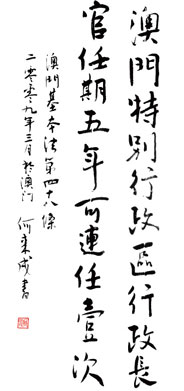 澳門特別行政區行政長
官任期五年可連任壹次
澳門基本法第四十八條
二零零九年三月於澳門 何東成書